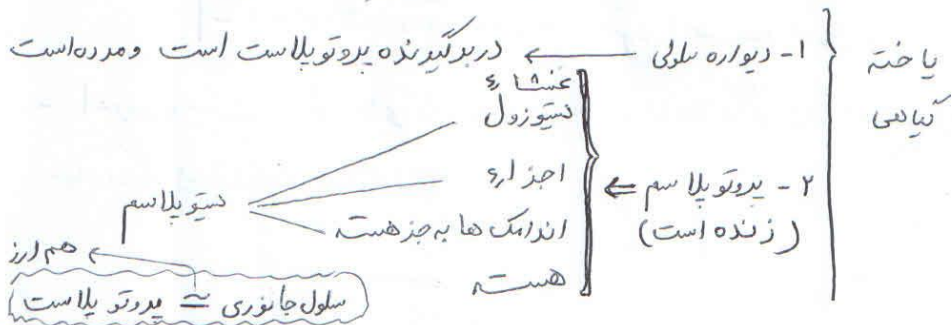 یاخته گیاهی
۱- دیواره سلولی ← دربرگیرنده پروتوپلاست است و مرده است
۲- پروتوپلاسم ⇐
(زنده است)
غشاء
سیتوزول
اجزاء
اندامک ها به جز هسته
هسته
سیتوپلاسم
هم ارز
سلول جانوری ≃ پروتوپلاست